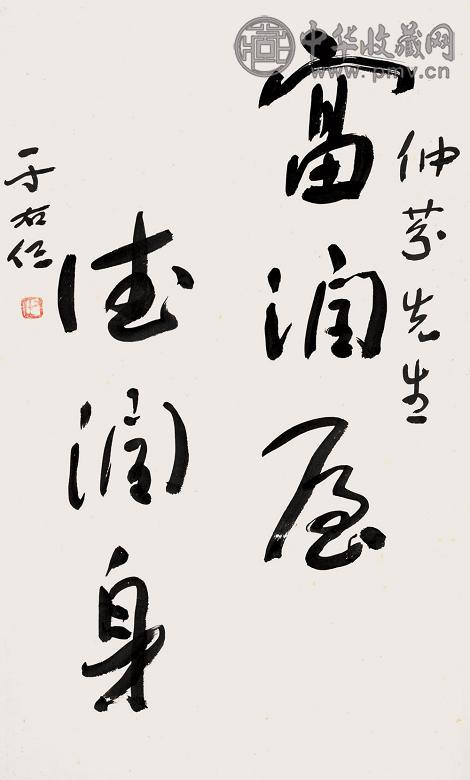 中华收藏网
www.pmv.cn
仲芬先生
富润屋
德润身
于右任